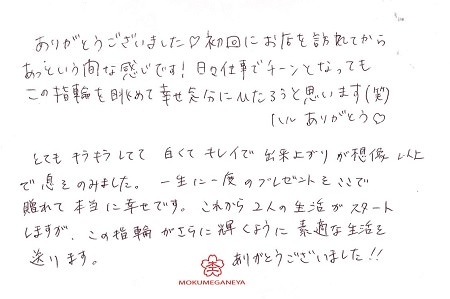 ありがとうございました♡初回にお店を訪れてから
あっという間な感じです！日々仕事でチーンとなっても
この指輪を眺めて幸せ気分にひたろうと思います(笑)
ハル ありがとう♡
とてもキラキラしてて 白くてキレイで出来上がりが想像以上
で息をのみました。一生に一度のプレゼントをここで
贈れて本当に幸せです。これから2人の生活がスタート
しますが、この指輪がさらに輝くように素適な生活を
送ります。 ありがとうございました!!
MOKUMEGANEYA